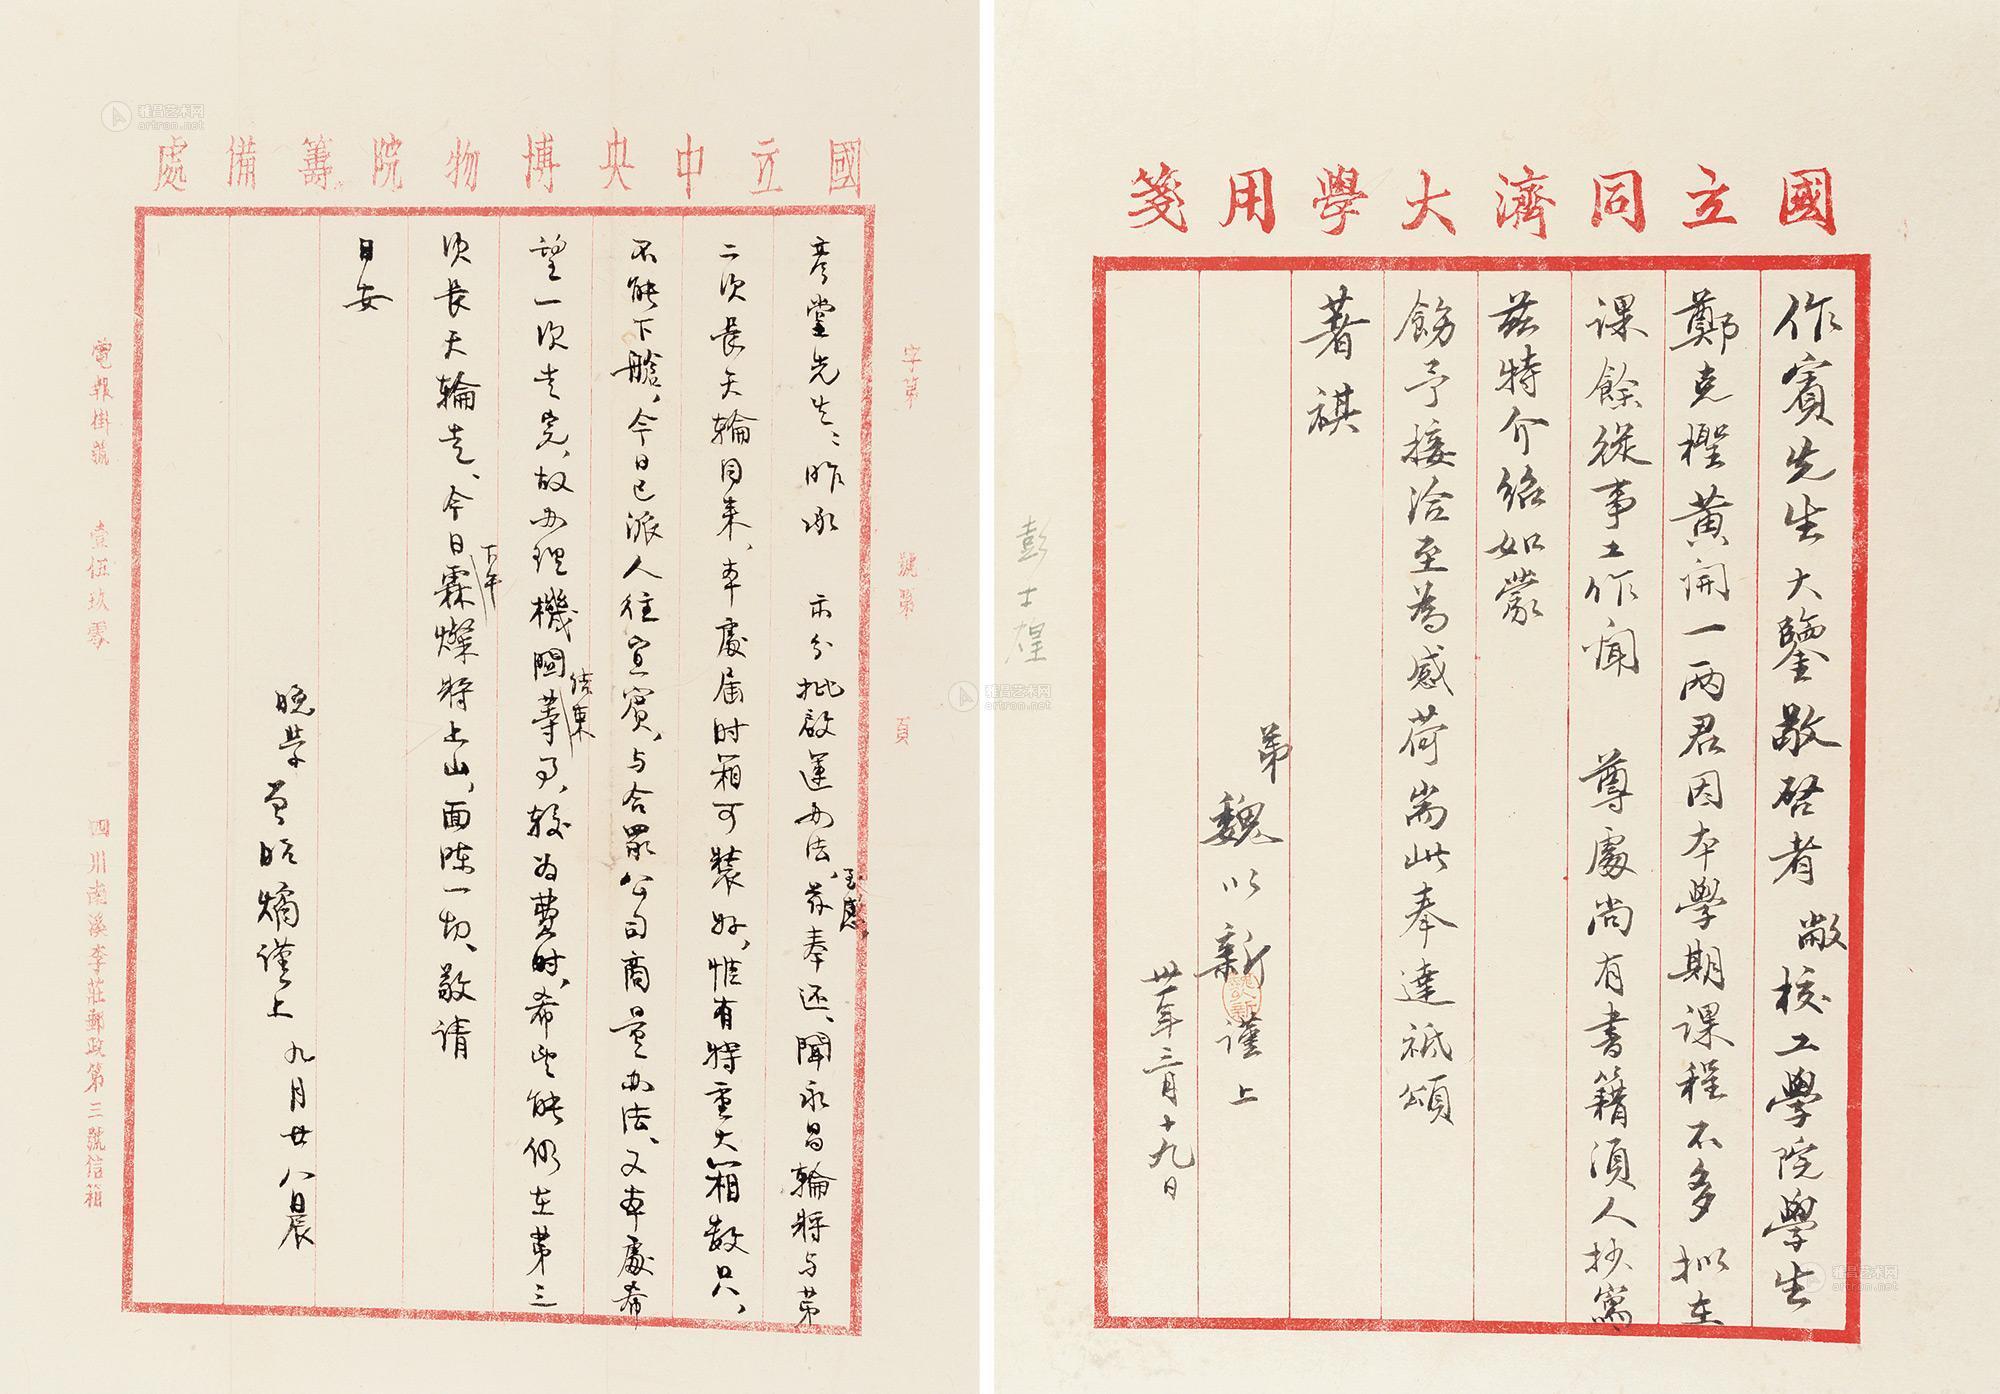 國立同濟大學用箋
作賓先生大鑒敬啓者敝校工學院學生
鄭克檉黃開一兩君因本學期課程不多擬在
課餘從事工作聞　尊處尚有書籍須人抄寫
茲特介紹如蒙
飭予接洽至為感荷耑此奉達祗頌
著祺
弟
魏以新謹上
卅一年三月十九日
彭士煌
國立中央博物院籌備處
彥堂先生：昨承　示分批啟運办法，至感，茲奉还、聞永昌輪將与第
二次長天輪同来、本處屆时箱可裝好，惟有特重大箱数只，
不能下艙，今日已派人往宜賓，与合眾公司商量办法、又本處希
望一次走完，故办理機關結束等事，較为費时，希望能仍在第三
次長天輪走、今日下午霖燦将上山，面陳一切、敬请
日安
晚学曾昭燏謹上　九月廿八日晨
字第　號第　頁
電報掛號　壹伍玖零　四川南溪李莊郵政第三號信箱
雅昌艺术网
artron.net
雅昌艺术网
artron.net
雅昌艺术网
artron.net